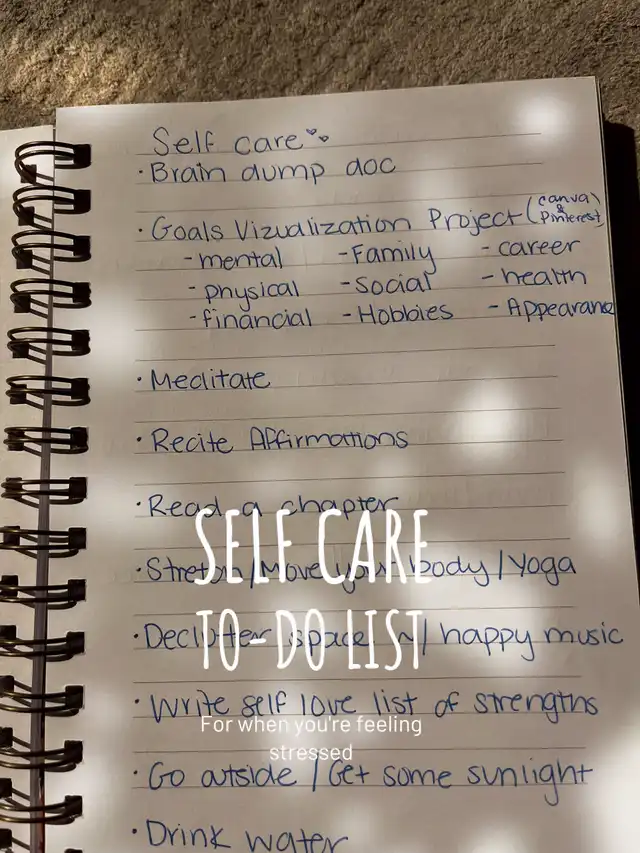 Self care
• Brain dump doc
• Goals Vizualization Project (canva & Pinterest)
- mental - Family - career
- physical - Social - health
- financial - Hobbies - Appearanc
• Meditate
• Recite Affirmations
• Read a chapter
SELF CARE
• Stretch/Move your body/Yoga
TO-DO LIST
• Declutter space w/ happy music
• Write self love list of strengths
For when you're feeling
stressed
• Go outside / Get some sunlight
• Drink water